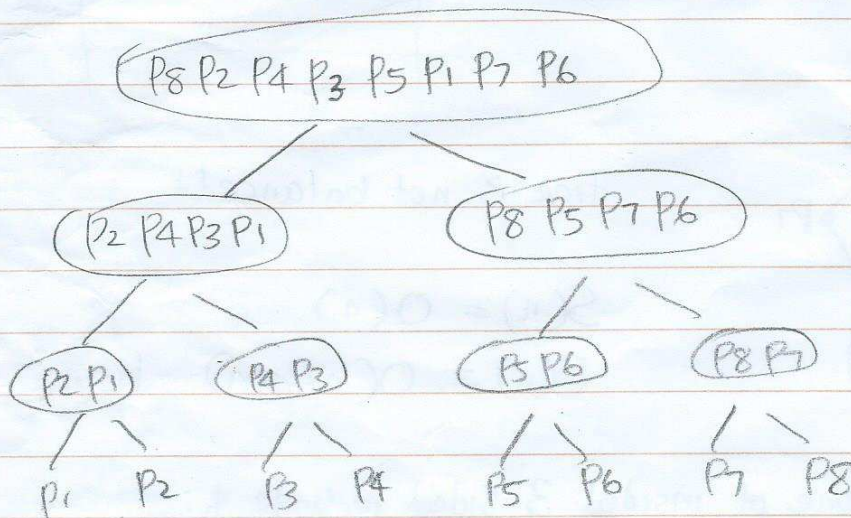 P8 P2 P4 P3 P5 P1 P7 P6
P2 P4 P3 P1 P8 P5 P7 P6
P2 P1 P4 P3 P5 P6 P8 P7
P1 P2 P3 P4 P5 P6 P7 P8